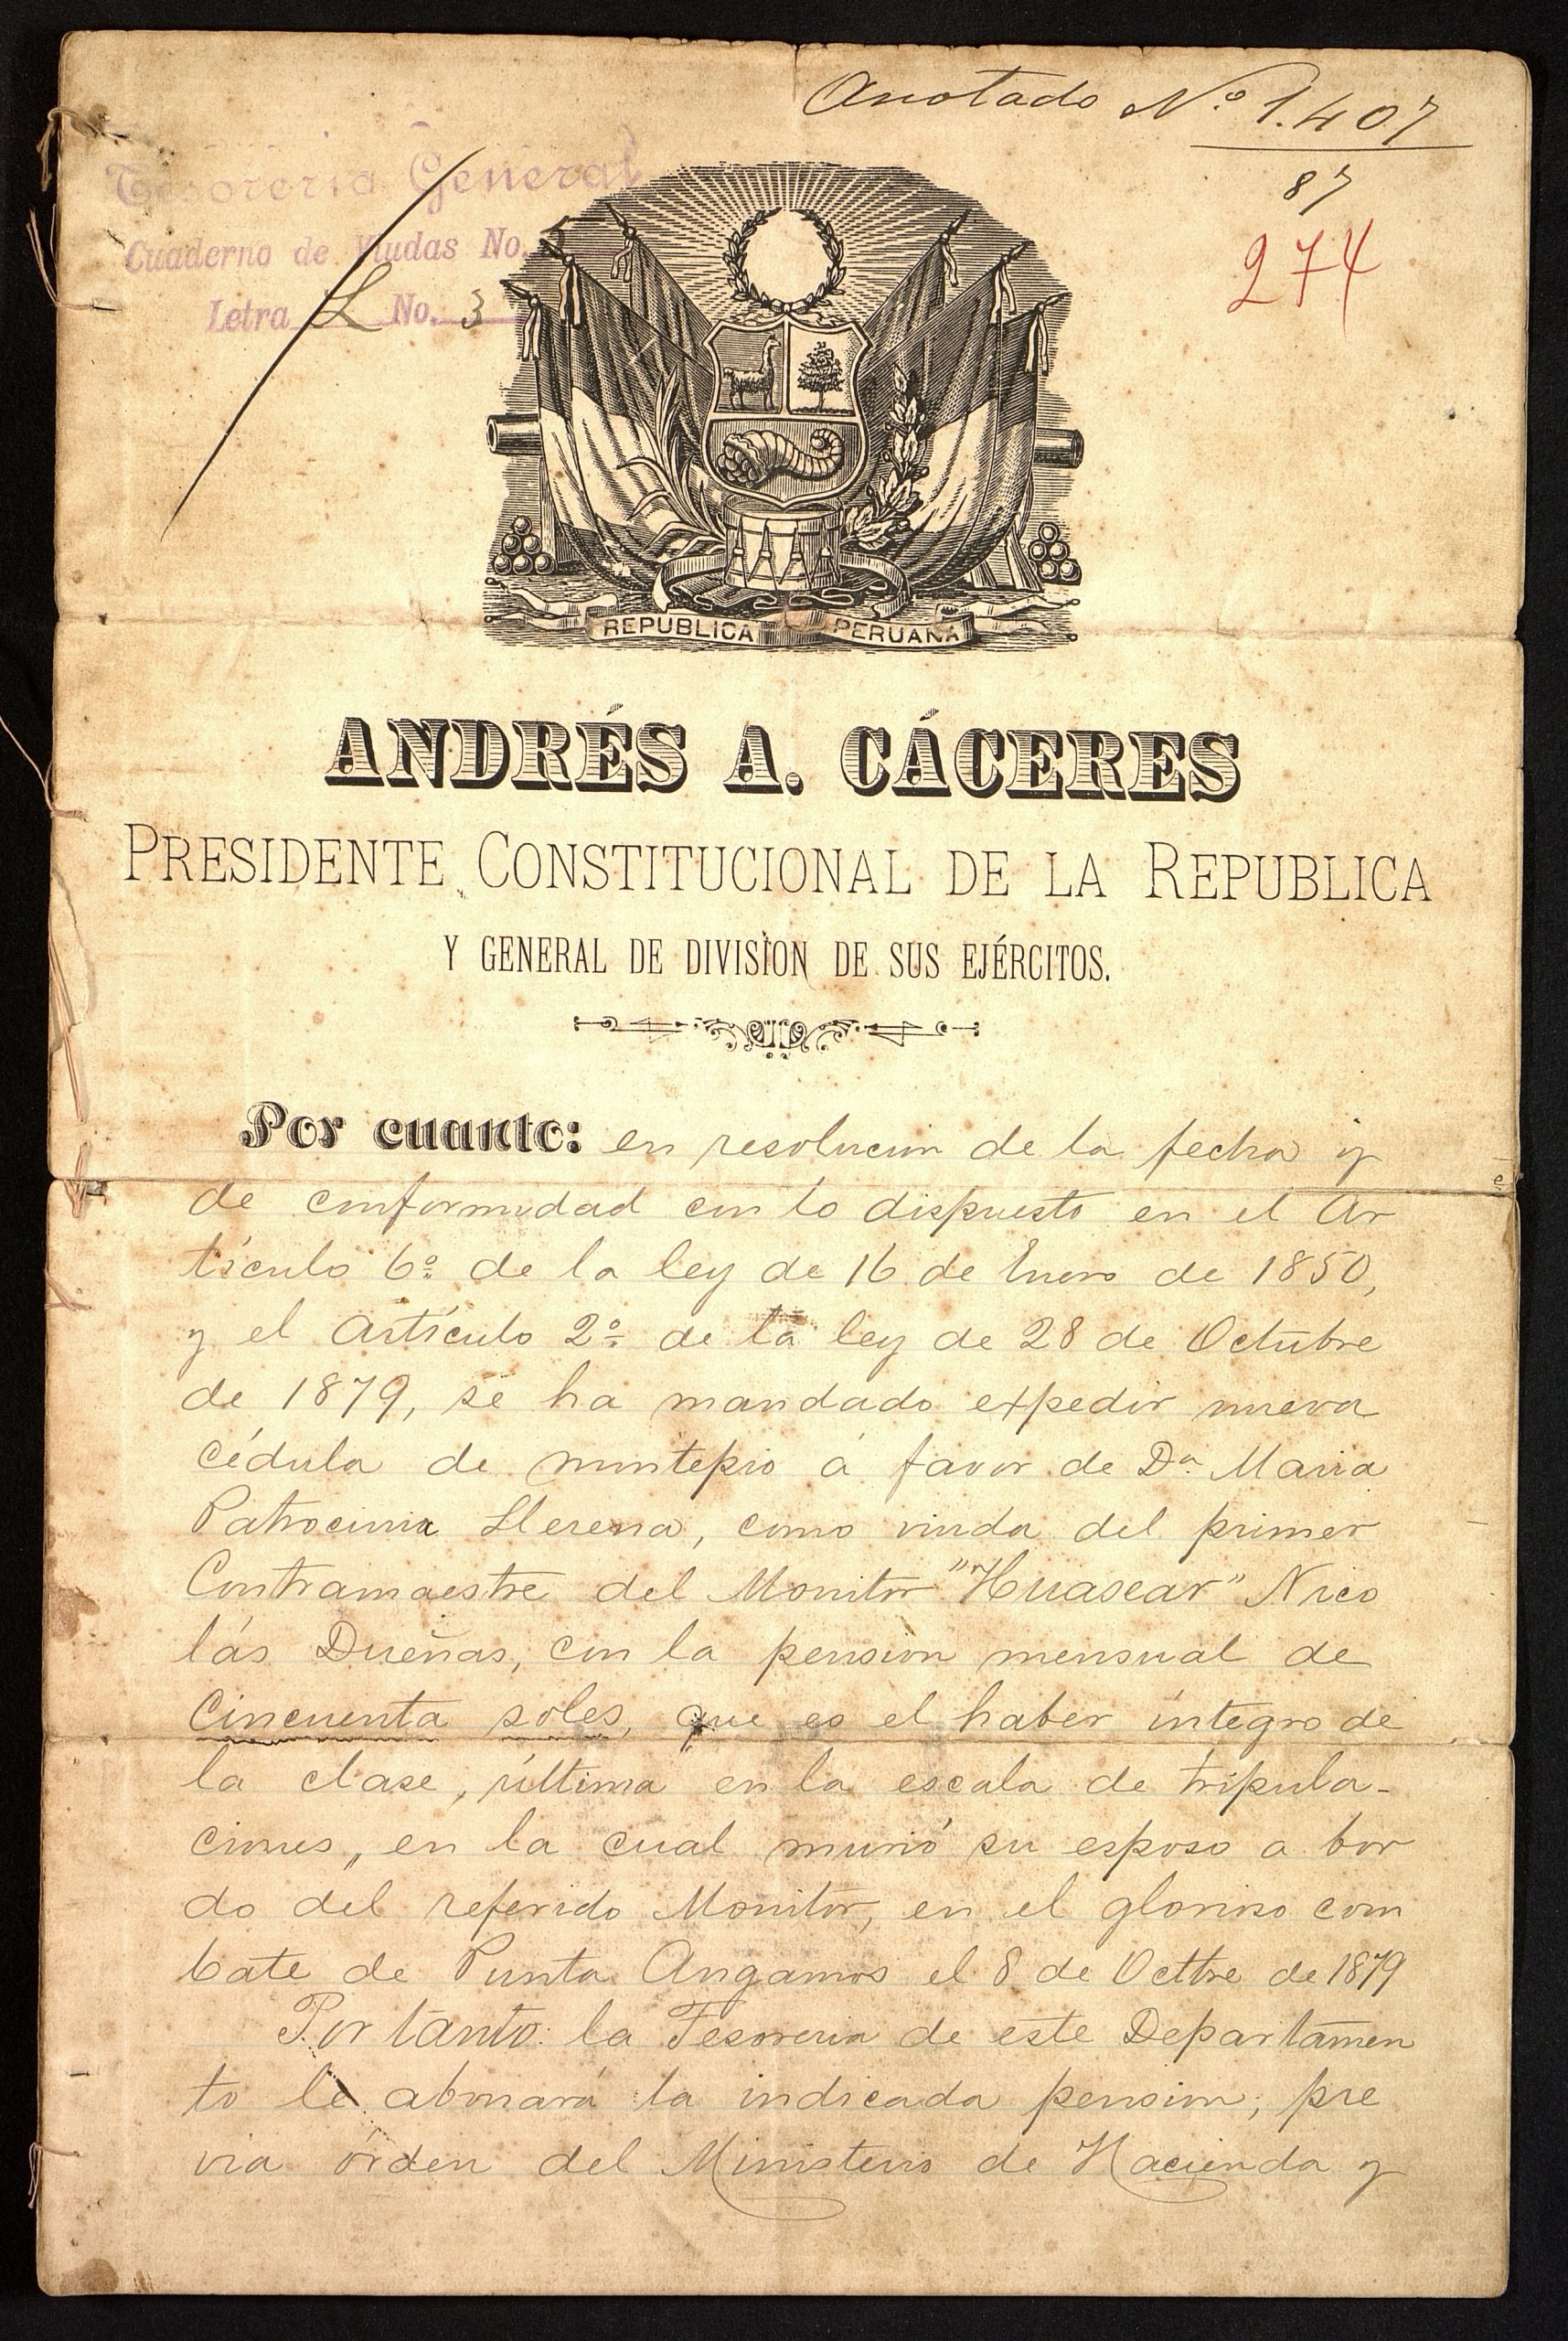 Anotado Nº 1.407
87
274
Tesoreria General
Cuaderno de Viudas No.
Letra L No. 3
REPUBLICA PERUANA
ANDRÉS A. CÁCERES
PRESIDENTE CONSTITUCIONAL DE LA REPUBLICA
Y GENERAL DE DIVISION DE SUS EJÉRCITOS.
Por cuanto: en resolucion de la fecha y
de conformidad con lo dispuesto en el Ar
tículo 6º de la ley de 16 de Enero de 1850,
y el Artículo 2º de la ley de 28 de Octubre
de 1879, se ha mandado expedir nueva
cédula de montepio á favor de Dª Maria
Patrocinia Llerena, como viuda del primer
Contramaestre del Monitor "Huascar" Nico
lás Dueñas, con la pension mensual de
Cincuenta soles, que es el haber integro de
la clase, última en la escala de tripula-
ciones, en la cual murió su esposo a bor
do del referido Monitor, en el glorioso com
bate de Punta Angamos el 8 de Octtre de 1879
Por tanto: la Tesoreria de este Departamen
to le abonará la indicada pension, pre
via órden del Ministerio de Hacienda y